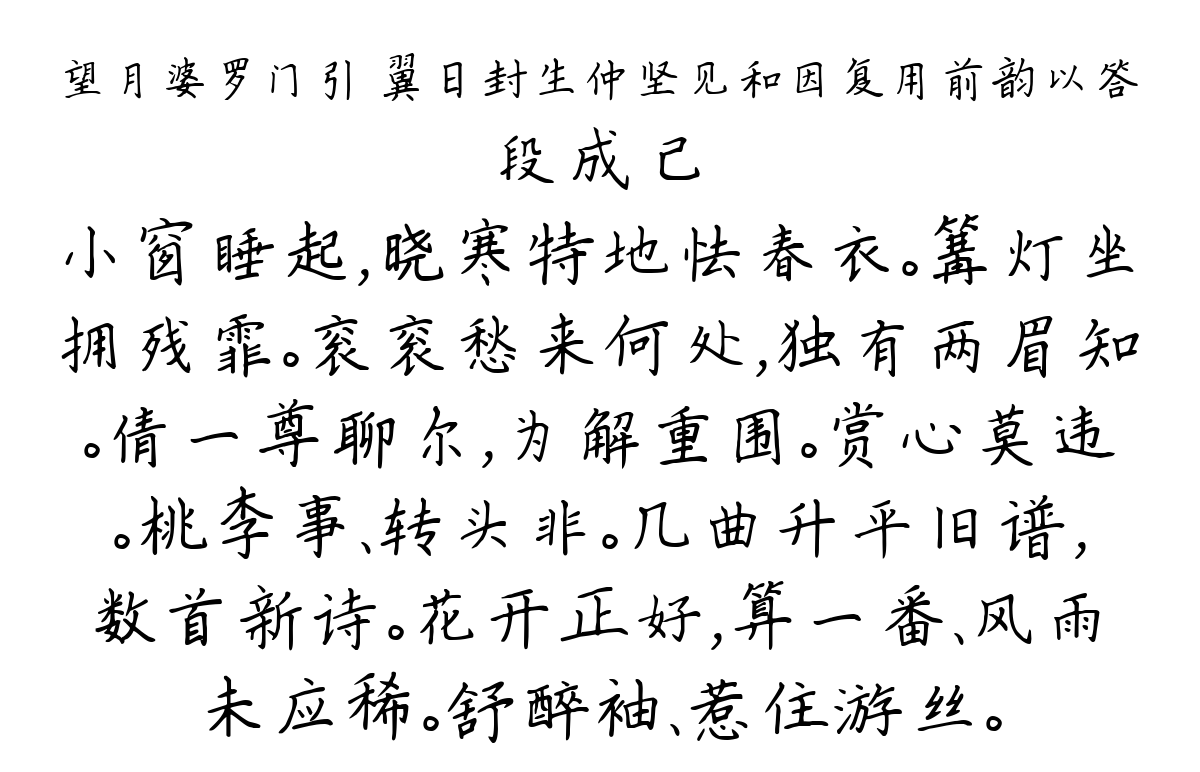 望月婆罗门引 翼日封生仲坚见和因复用前韵以答
段成己
小窗睡起,晓寒特地怯春衣。篝灯坐
拥残霏。衮衮愁来何处,独有两眉知
。倩一尊聊尔,为解重围。赏心莫违
。桃李事、转头非。几曲升平旧谱,
数首新诗。花开正好,算一番、风雨
未应稀。舒醉袖、惹住游丝。